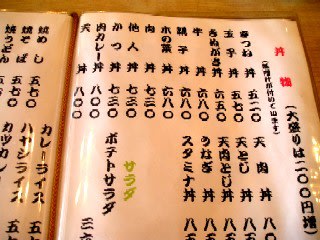 丼物 (大盛りは二〇〇円増)
(味噌汁が付いて居ます)
きつね丼 五二〇
玉子丼 五七〇
きぬがさ丼 六〇〇
牛丼 六八〇
親子丼 六八〇
木の葉丼 六八〇
肉丼 七三〇
他人丼 七三〇
かつ丼 七三〇
肉カレー丼 八〇〇
天丼 八〇〇
天肉丼 八
天とじ丼 八
天肉とじ丼 八五
うなぎ丼 八五
スタミナ丼 八五
サラダ
ポテトサラダ 三
焼めし 五七〇
焼そば 五七〇
焼うどん 五
カレーライス 五
ハヤシライス 五七
カツカレー